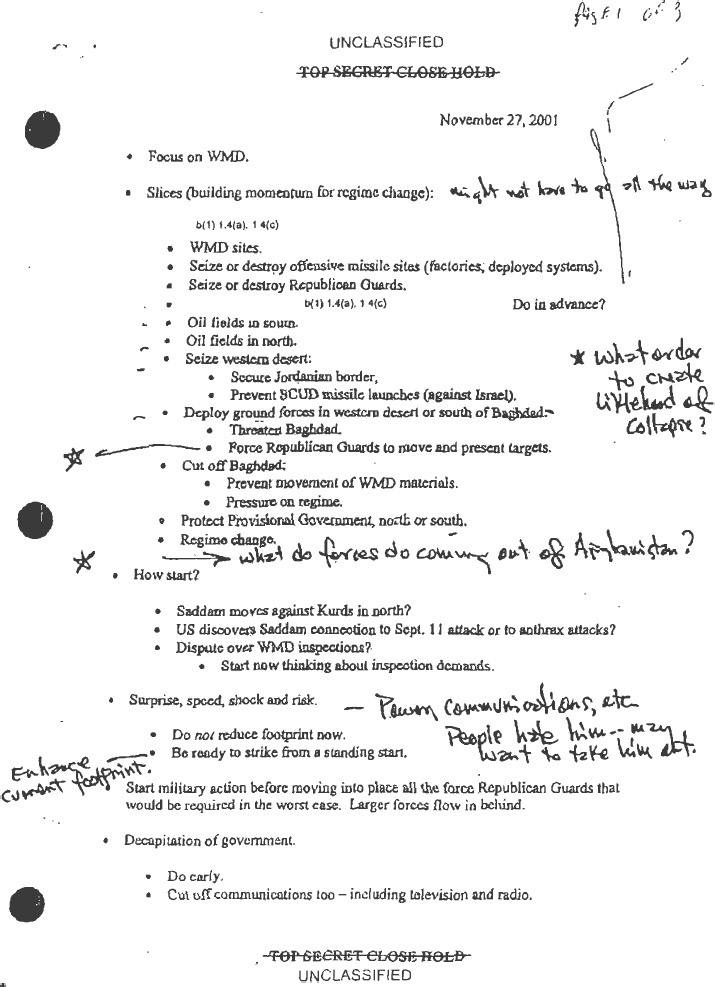 UNCLASSIFIED
TOP SECRET CLOSE HOLD
November 27, 2001
• Focus on WMD.
• Slices (building momentum for regime change): might not have to go all the way
b(1) 1.4(a). 1 4(c)
• WMD sites.
• Seize or destroy offensive missile sites (factories, deployed systems).
• Seize or destroy Republican Guards.
• b(1) 1.4(a). 1 4(c) Do in advance?
• Oil fields in south.
• Oil fields in north.
• Seize western desert:
• Secure Jordanian border,
• Prevent SCUD missile launches (against Israel).
* What order
to create
likelihood of
collapse?
• Deploy ground forces in western desert or south of Baghdad:
• Threaten Baghdad.
• Force Republican Guards to move and present targets.
• Cut off Baghdad:
• Prevent movement of WMD materials.
• Pressure on regime.
• Protect Provisional Government, north or south.
• Regime change.
What do forces do coming out of Afghanistan?
• How start?
• Saddam moves against Kurds in north?
• US discovers Saddam connection to Sept. 11 attack or to anthrax attacks?
• Dispute over WMD inspections?
• Start now thinking about inspection demands.
• Surprise, speed, shock and risk. — Power, communications, etc
People hate him -- may
want to take him out.
• Do not reduce footprint now.
• Be ready to strike from a standing start.
Enhance
current footprint.
Start military action before moving into place all the force Republican Guards that
would be required in the worst case. Larger forces flow in behind.
• Decapitation of government.
• Do early.
• Cut off communications too – including television and radio.
TOP SECRET CLOSE HOLD
UNCLASSIFIED